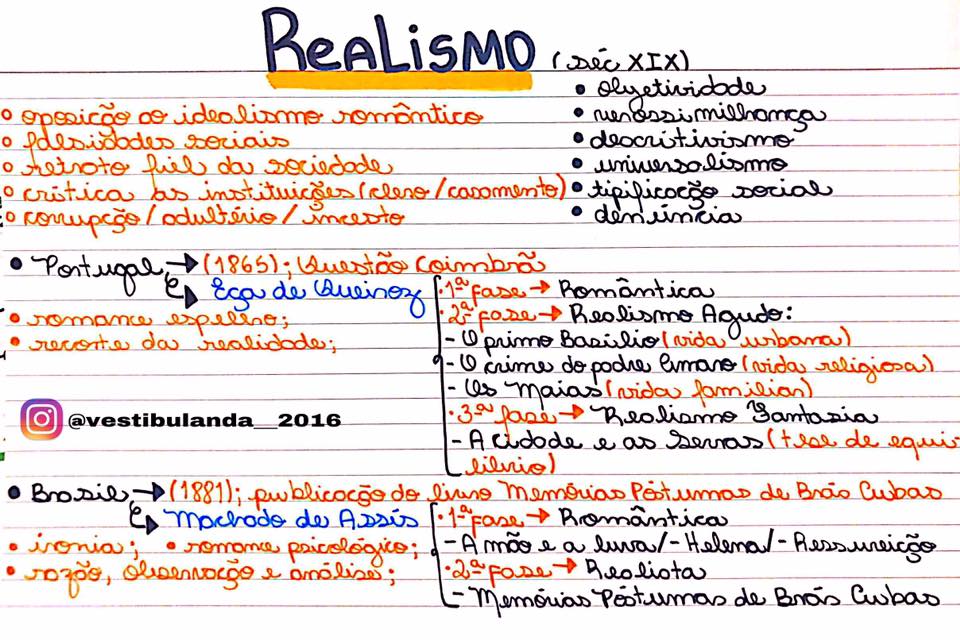 Realismo (séc XIX)
• objetividade
• oposição ao idealismo romântico
• verossimilhança
• falsidades sociais
• descritivismo
• retrato fiel da sociedade
• universalismo
• crítica às instituições (clero/casamento)
• tipificação social
• corrupção/adultério/incesto
• denúncia
• Portugal → (1865); Questão Coimbrã
→ Eça de Queiroz
• romance espelho;
• recorte da realidade;
• 1ª fase → Romântica
• 2ª fase → Realismo Agudo:
- O primo Basílio (vida urbana)
- O crime do padre Amaro (vida religiosa)
- Os Maias (vida familiar)
• 3ª fase → Realismo Fantasia
- A cidade e as Serras (tese de equi-
líbrio)
@vestibulanda__2016
• Brasil → (1881); publicação do livro Memórias Póstumas de Brás Cubas
→ Machado de Assis
• ironia; • romance psicológico;
• razão, observação e análise;
• 1ª fase → Romântica
- A mão e a luva/- Helena/- Ressureição
• 2ª fase → Realista
- Memórias Póstumas de Brás Cubas